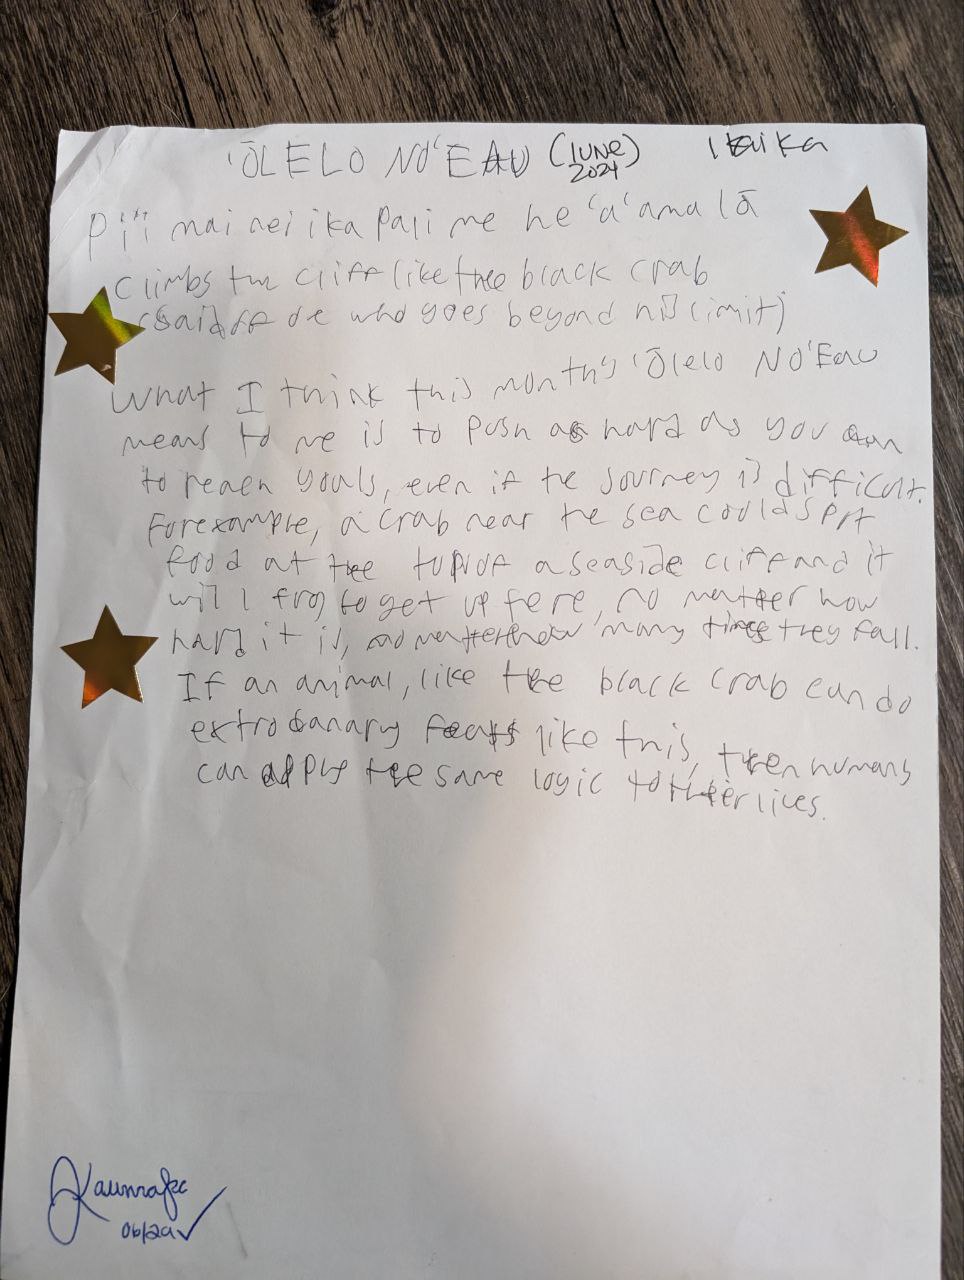 ʻŌLELO NOʻEAU (JUNE) 2024
Piʻi mai nei i ka Pali me he ʻaʻama lā
Climbs the cliff like the black crab
(Said of de who goes beyond his limit)
What I think this month's ʻŌlelo NOʻEau
means to me is to push as hard as you can
to reach goals, even if the journey is difficult.
For example, a crab near the sea could spot
food at the top of a seaside cliff and it
will try to get up there, no matter how
hard it is, no matter how many times they fall.
If an animal, like the black crab can do
extrodanary feats like this, then humans
can apply the same logic to their lives.